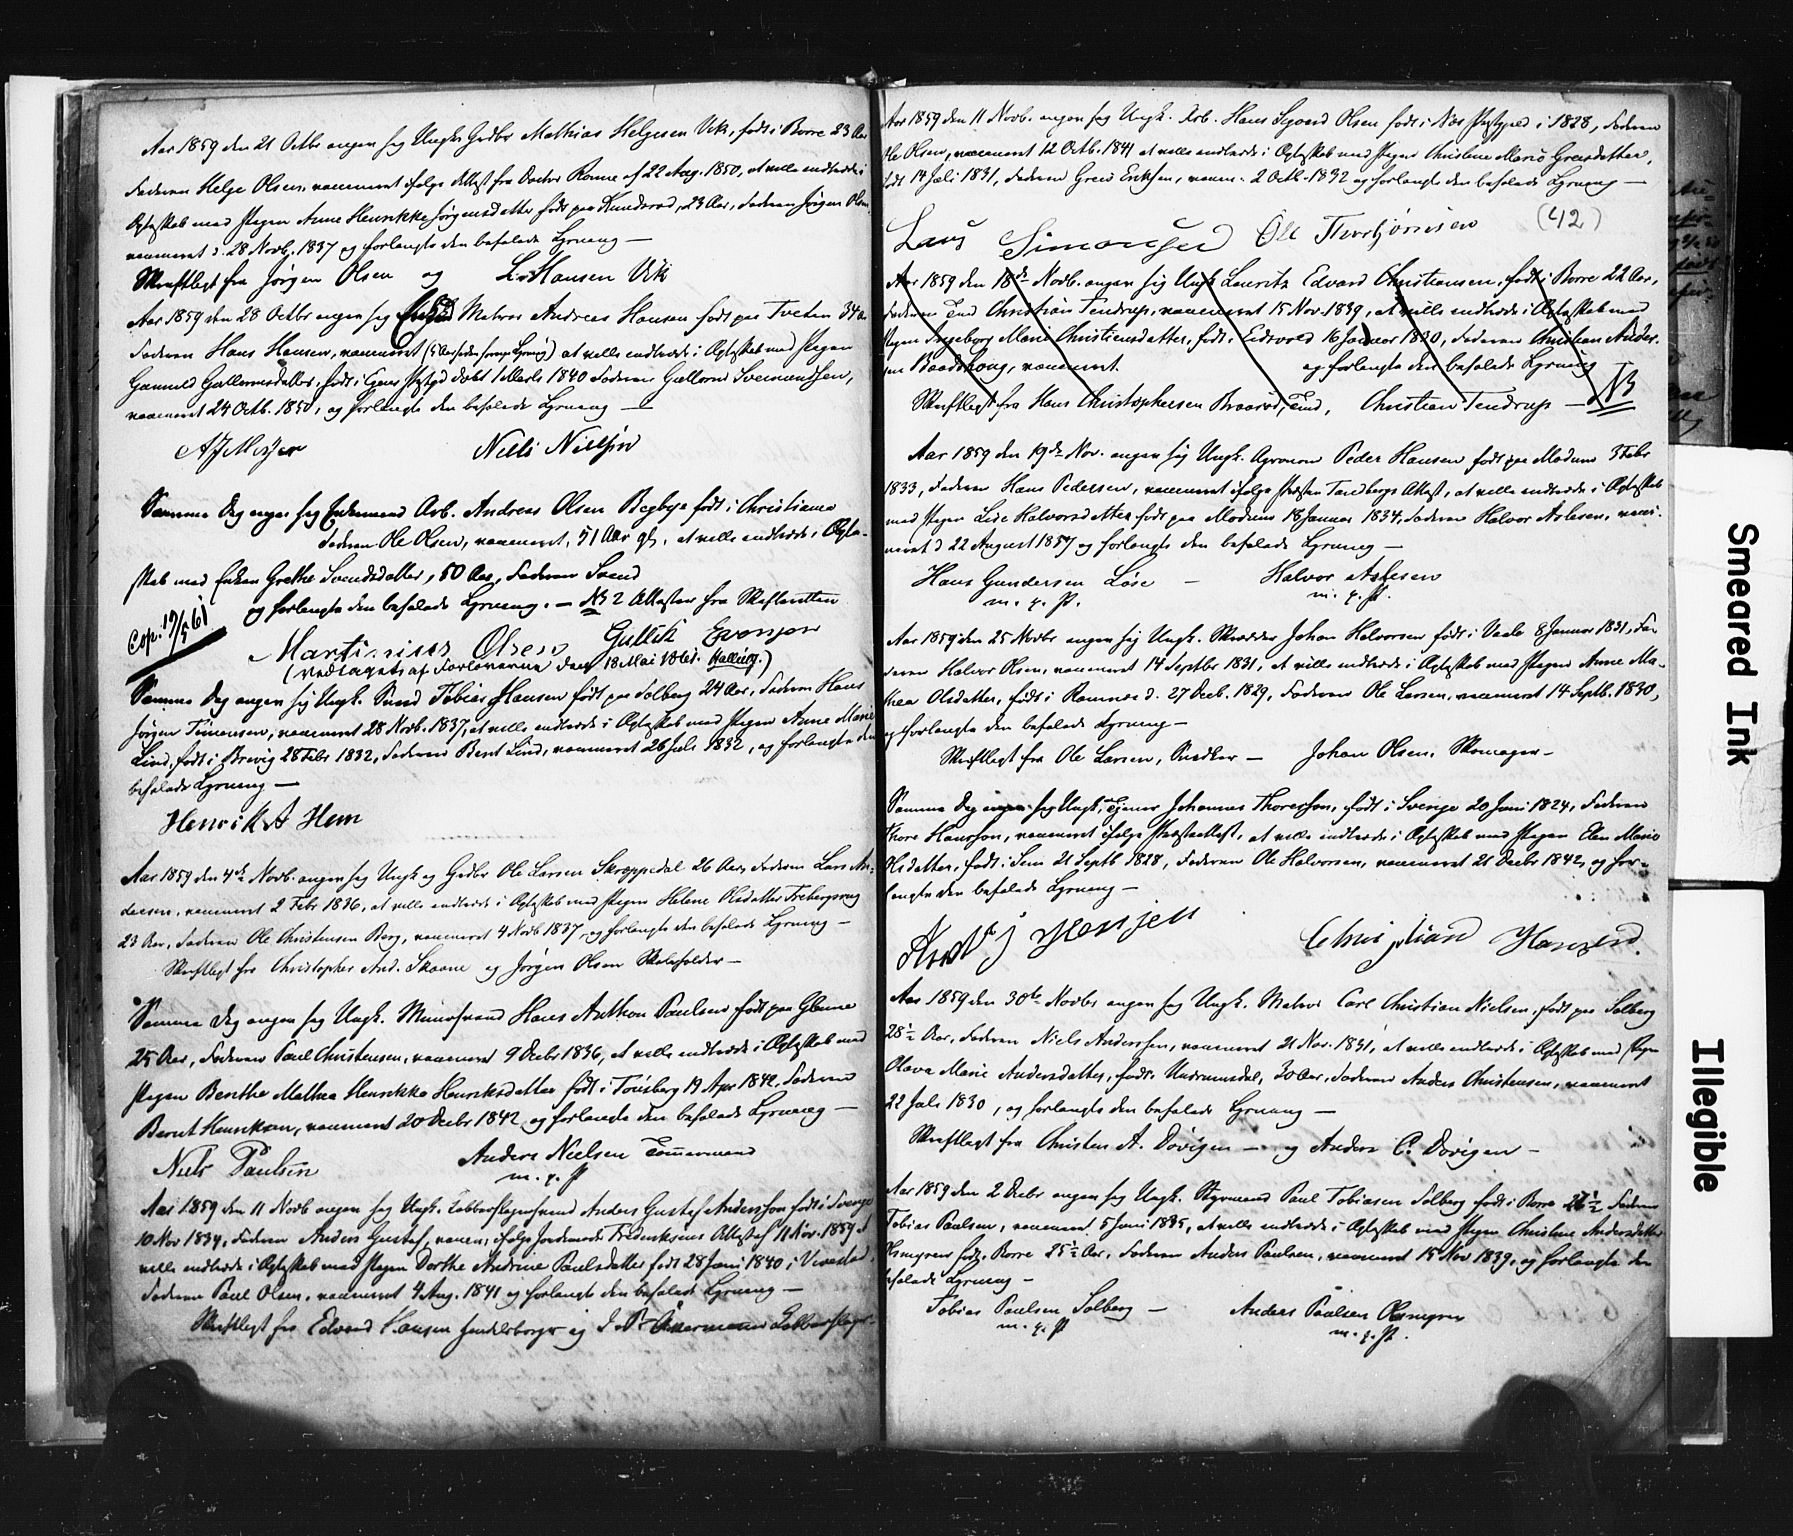 Aar 1859 den 21 Octbr angav sig Ungk. Gmbr Mathias Helgesen Vik, født i Borre 23 Aar
Faderen Helge Olsen, vaccineret ifølge Attest fra Doctor Rønne af 22 Aug. 1850, at ville indtræde i
Ægteskab med Pigen Anne Henrikke Jørgensdatter født paa Kundsrød, 23 Aar, Faderen Jørgen Olsen,
vaccineret d. 28 Novb. 1837 og forlangte den befalede Lysning —
Skriftligt fra Jørgen Olsen og L. Hansen Vik
Aar 1859 den 28 Octbr angav sig Matros Andreas Hansen født paa Tveten 34 Aar
Faderen Hans Hansen, vaccineret at ville indtræde i Ægteskab med Pigen
Gunnild Gullovsdatter, født i Præstgd døbt 1 Marts 1840 Faderen Gullove
vaccineret 24 Octb. 1850, og forlangte den befalede Lysning —
A J Meyer Nils Nielsen
Samme Dag angav sig Enkemand Arb. Andreas Olsen Begbye født i Christiania
Faderen Ole Olsen, vaccineret, 51 Aar gl., at ville indtræde i Ægte-
skab med Enken Grethe Svendsdatter, 50 Aar, Faderen Svend
og forlangte den befalede Lysning. — NB 2 Attester fra Skifteretten
Cop. 19/5 61
Martinius Olsen Gullik Evensen
(vedtaget af Forloverne den 18 Mai 1861. Halling.)
Samme Dag angav sig Ungk. Smed Tobias Hansen født paa Solberg 24 Aar, Faderen Hans
Jørgen Simensen, vaccineret 28 Novb. 1837, at ville indtræde i Ægteskab med Pigen Anne Marie
Lind, født i Brevig 28 Febr 1832, Faderen Bent Lind, vaccineret 26 Juli 1832, og forlangte den
befalede Lysning —
Henrik A Hem
Aar 1859 den 4de Novb. angav sig Ungk og Gmbr Ole Larsen Skroppedal 26 Aar, Faderen Lars An-
dersen, vaccineret 2 Febr 1836, at ville indtræde i Ægteskab med Pigen Helene Olsdatter Trebergsrug
23 Aar, Faderen Ole Christensen Berg, vaccineret 4 Novb 1837 og forlangte den befalede Lysning —
Skriftligt fra Christopher And. Skaane og Jørgen Olsen Skoleholder —
Samme Dag angav sig Ungk. Murersvend Hans Anthon Paulsen født paa Glenne
25 Aar, Faderen Paul Christensen, vaccineret 9 Decbr 1836, at ville indtræde i Ægteskab med
Pigen Benthe Mathea Henrikke Henriksdatter født i Tønsberg 19 Apr 1842, Faderen
Bernt Henriksen, vaccineret 20 Decbr 1842 og forlangte den befalede Lysning —
Niels Paulsen Anders Nielsen Tømmermand
m. p. P
Aar 1859 den 11 Novb angav sig Ungk. Kobberslagersvend Anders Gustaf Andersson født i Sverige
10 Nov 1834, Faderen Anders Gustaf, vaccin. ifølge Jordemoder Frederiksens Attest af 11 Nov. 1859 at
ville indtræde i Ægteskab med Pigen Dorthe Andrine Paulsdatter født 28 Juni 1840 i Vivestad,
Faderen Paul Olsen, vaccineret 4 Aug. 1841 og forlangte den befalede Lysning —
Skriftligt fra Edvard Hansen Handelsborger og J. P. Kobberslager —
Aar 1859 den 11 Novb. angav sig Ungk. Arb. Hans Sigvard Olsen født i Næs Præstgjeld i 1828, Faderen
Ole Olsen, vaccineret 12 Octb. 1841 at ville indtræde i Ægteskab med Pigen Christine Marie Greisdatter,
født 14 Juli 1831, Faderen Greis Eriksen, vaccin. 2 Octb. 1832 og forlangte den befalede Lysning —
(42)
Lars Simonsen Ole Thorbjørnsen
Aar 1859 den 18de Novb. angav sig Ungk Lauritz Edvard Christiansen, født i Borre 22 Aar,
Faderen Christian Tendrup, vaccineret 15 Nov. 1839, at ville indtræde i Ægteskab med
Pigen Ingeborg Marie Christiansdatter, født i Eidsvold 16 Januar 1830, Faderen Christian Ander-
sen Baadshaug, vaccineret. og forlangte den befalede Lysning
Skriftligt fra Hans Christophersen Braarød, Christian Tendrup — NB
Aar 1859 den 19de Nov. angav sig Ungk. Agronom Peder Hansen født paa Modum 3 Febr
1833, Faderen Hans Pedersen, vaccineret ifølge Præsten Tandbergs Attest, at ville indtræde i Ægteskab
med Pigen Lise Halvorsdatter født paa Modum 18 Januar 1834, Faderen Halvor Aslesen, vacci-
neret d 22 August 1857 og forlangte den befalede Lysning —
Hans Gundersen Løse — Halvor Aslesen
m. p. P. m. p. P.
Aar 1859 den 25 Novbr angav sig Ungk. Skrædder Johan Halvorsen født i Vaale 8 Januar 1831, Fa-
deren Halvor Olsen, vaccineret 14 Septbr 1831, at ville indtræde i Ægteskab med Pigen Anne Ma-
thea Olsdatter, født i Ramnes d. 27 Decb. 1829, Faderen Ole Larsen, vaccineret 14 Septb. 1830,
og forlangte den befalede Lysning —
Skriftligt fra Ole Larsen, Snedker — Johan Olsen, Skomager —
Samme Dag angav sig Ungk. Tjener Johannes Thoresson, født i Sverige 20 Juni 1824, Faderen
Thore Hansson, vaccineret ifølge Præsteattest, at ville indtræde i Ægteskab med Pigen Elen Marie
Olsdatter, født i Sem 21 Septb 1828, Faderen Ole Halvorsen, vaccineret 21 Decbr 1842, og for-
langte den befalede Lysning —
Christian Hansen.
Aar 1859 den 30te Novbr angav sig Ungk. Matros Carl Christian Nielsen, født paa Solberg
28½ Aar, Faderen Niels Anderssen, vaccineret 21 Nov. 1831, at ville indtræde i Ægteskab med Pigen
Olava Marie Andersdatter, født i Undrumsdal, 30 Aar, Faderen Anders Christensen, vaccineret
22 Juli 1830, og forlangte den befalede Lysning —
Skriftligt fra Christen A. Dovigen — og Anders C. Dovigen —
Aar 1859 den 2 Decbr angav sig Ungk. Styrmand Paul Tobiasen Solberg født i Borre 26½ Faderen
Tobias Paulsen, vaccineret 5 Juni 1835, at ville indtræde i Ægteskab med Pigen Christine Andersdatter
født i Borre 25½ Aar, Faderen Anders Paulsen, vaccineret 15 Nov 1839, og forlangte den
befalede Lysning —
Tobias Paulsen Solberg — Anders Paulsen
m. p. P m. p. P.
Smeared Ink
Illegible